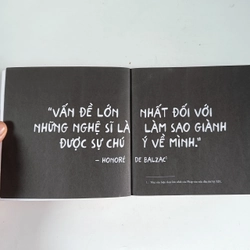 "VẤN ĐỀ LỚN NHẤT ĐỐI VỚI
NHỮNG NGHỆ SĨ LÀ LÀM SAO GIÀNH
ĐƯỢC SỰ CHÚ Ý VỀ MÌNH."
– HONORÉ DE BALZAC¹